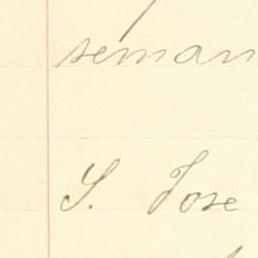 seman
S. Jose